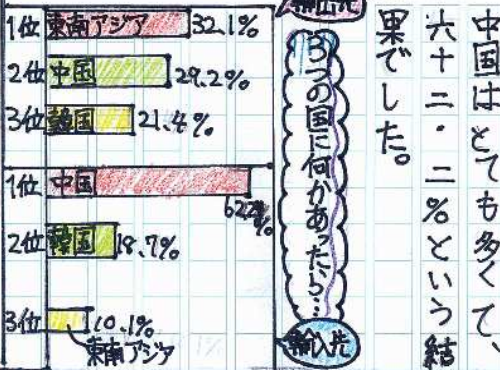 中国はとても多くて、
六十二・二%という結
果でした。
輸出先
3つの国に何かあったら…
輸入先
1位 東南アジア 32.1%
2位 中国 29.2%
3位 韓国 21.4%
1位 中国 62.2%
2位 韓国 18.7%
3位 10.1%
東南アジア